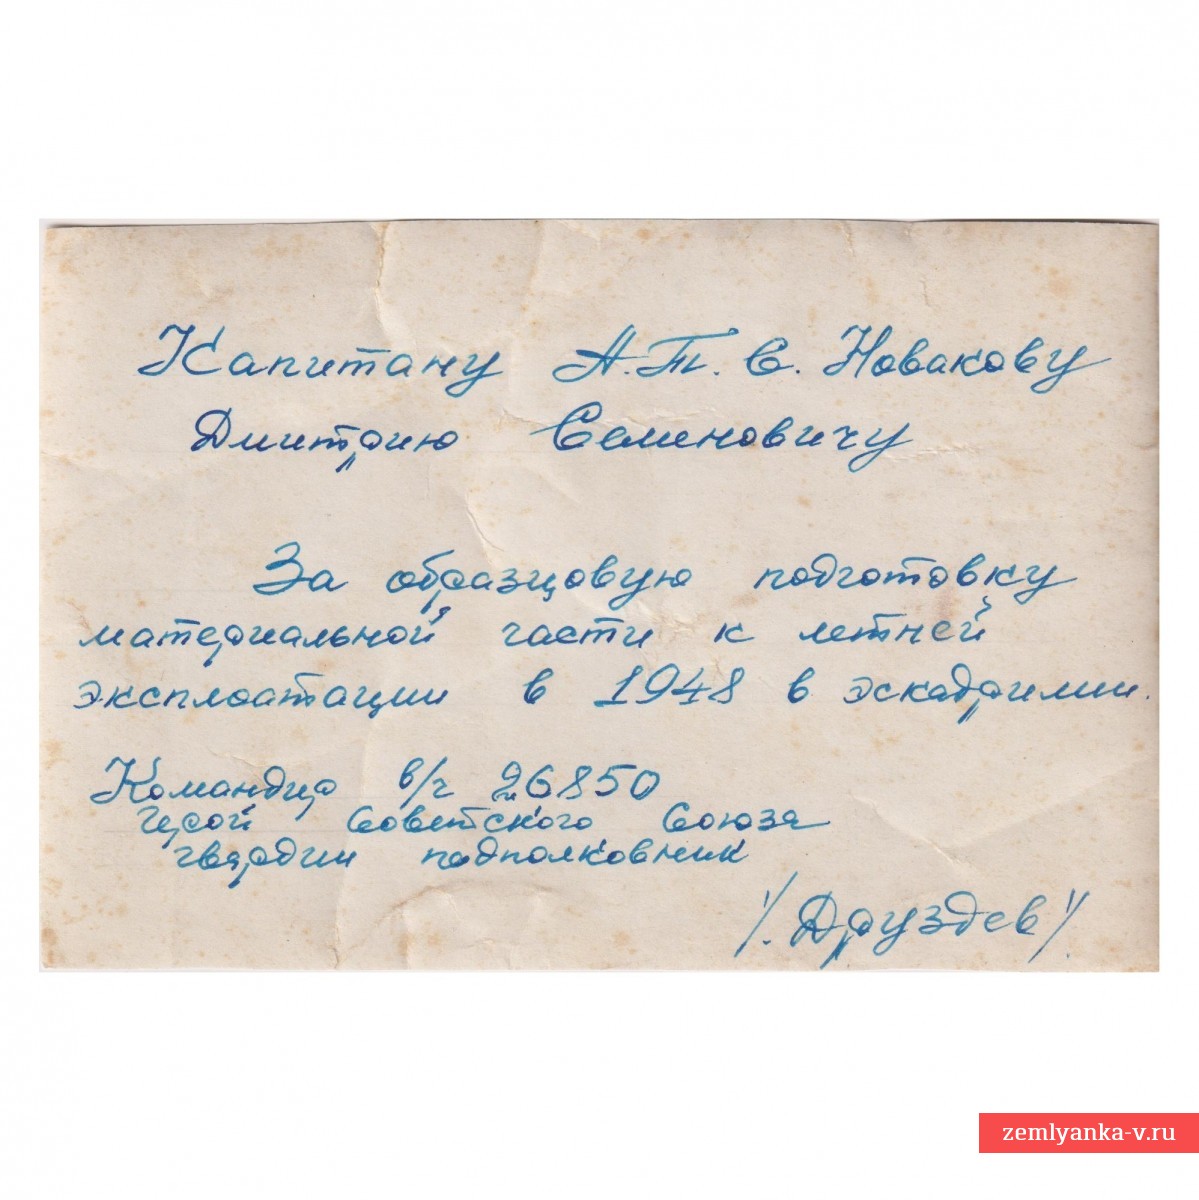 Капитану А.Т.С. Новакову
Дмитрию Семеновичу
За образцовую подготовку
материальной части к летней
эксплоатации в 1948 в эскадрилии.
Командир в/ч 26850
Герой Советского Союза
гвардии подполковник
/. Друздев /.
zemlyanka-v.ru